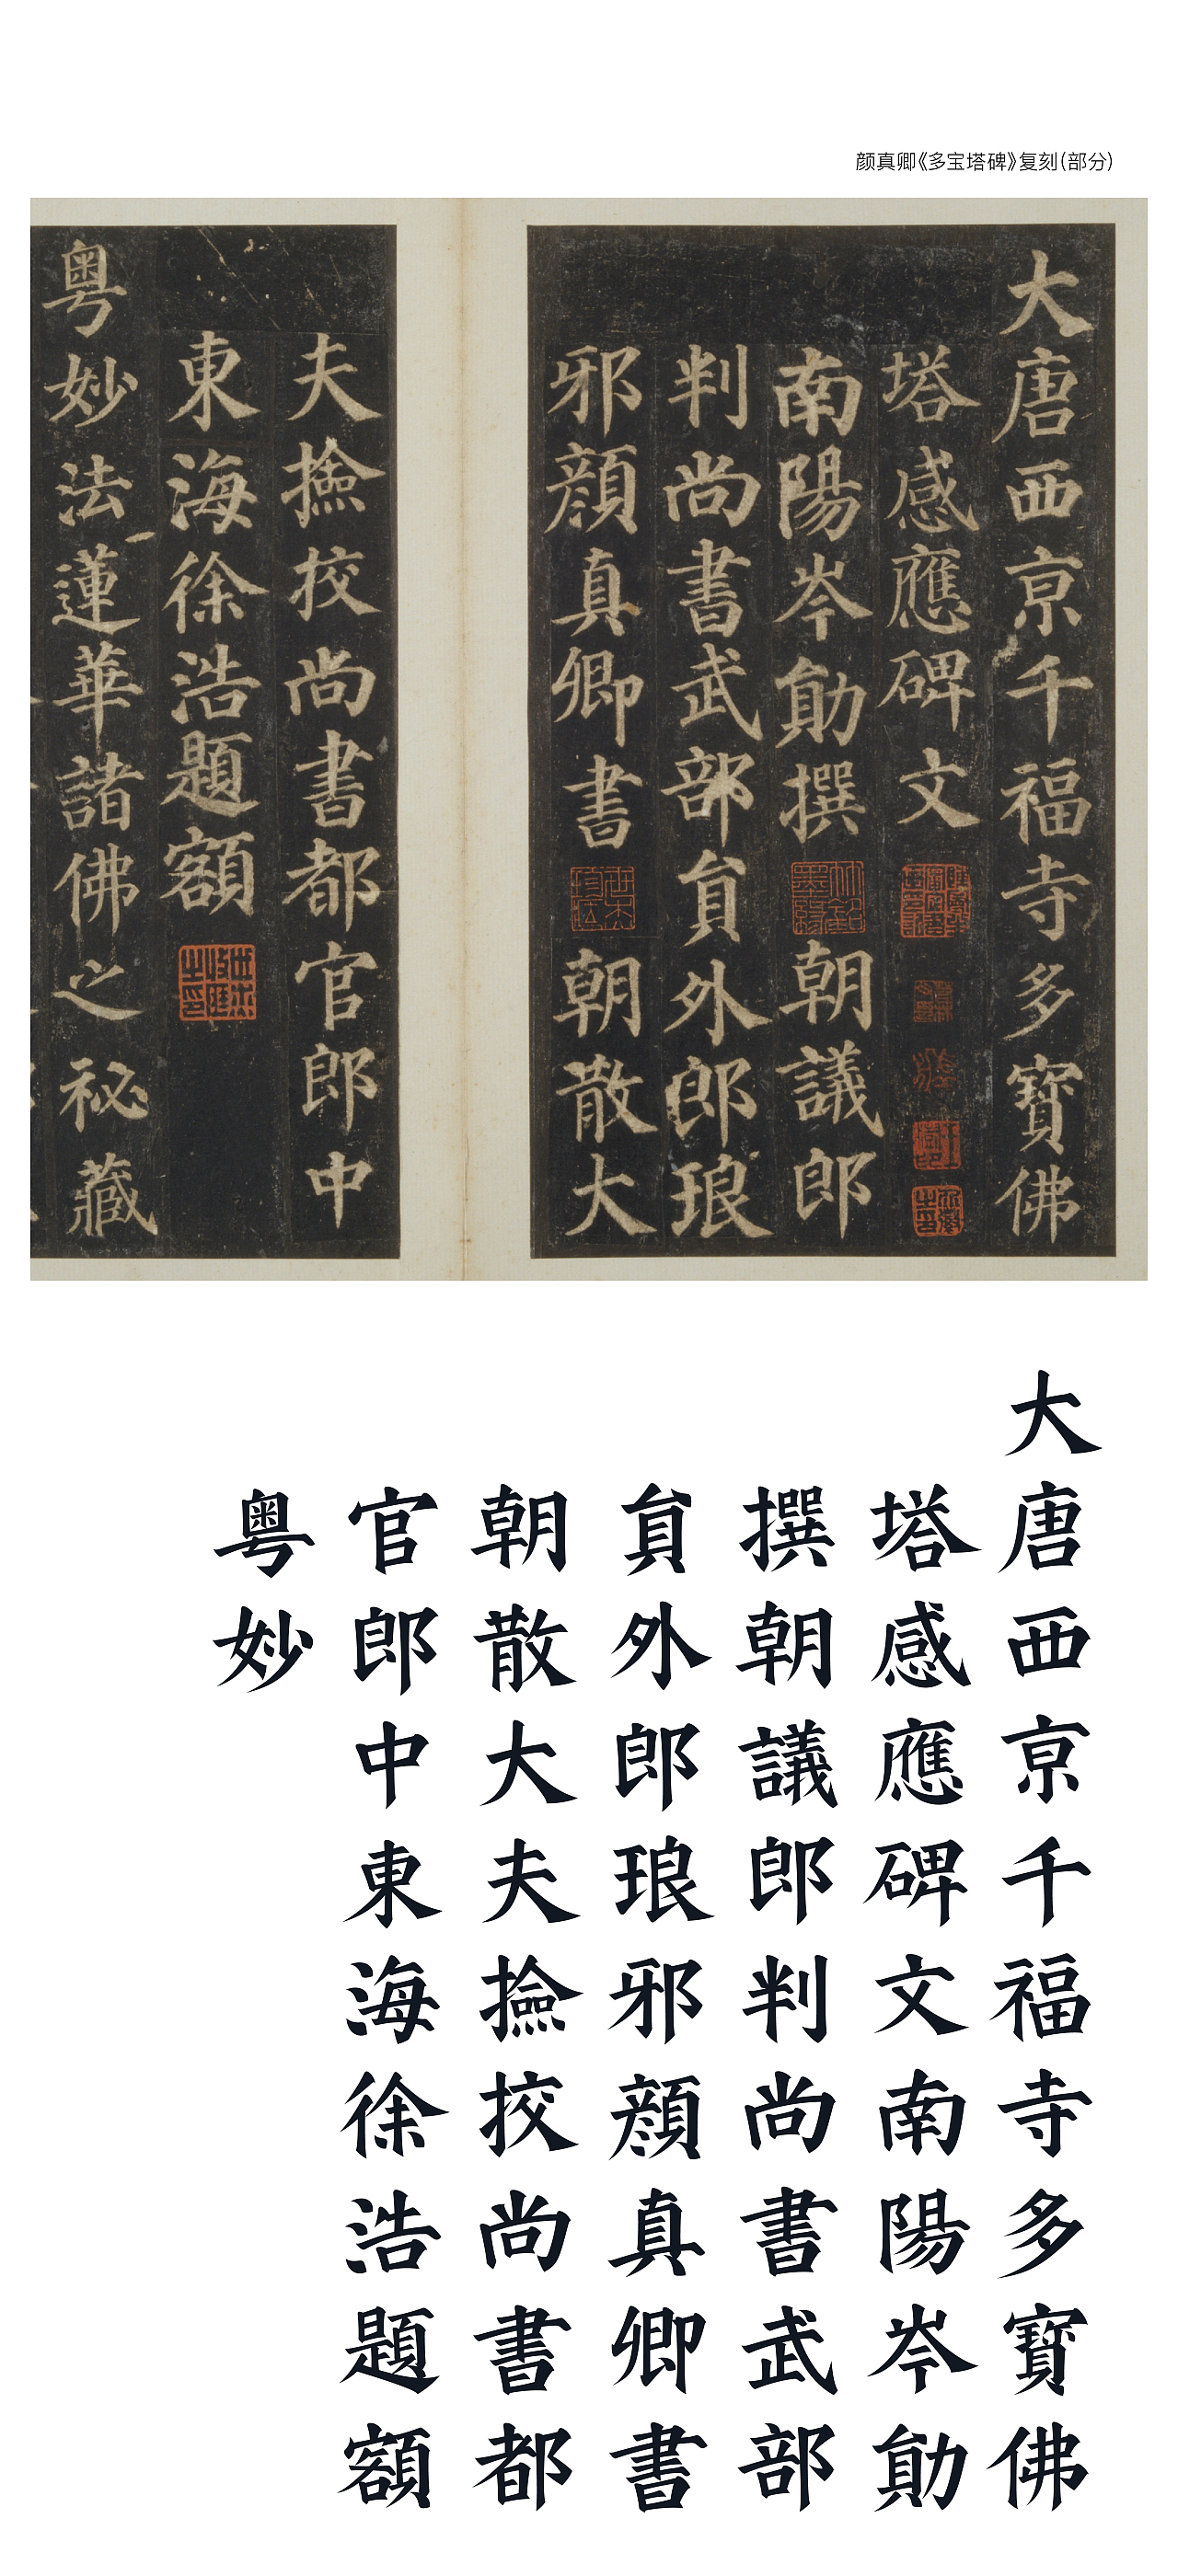 颜真卿《多宝塔碑》复刻(部分)
大唐西亰千福寺多寶佛
塔感應碑文
南陽岑勛撰
朝議郎
判尚書武部貟外郎琅
邪顔真卿書
朝散大
夫撿挍尚書都官郎中
東海徐浩題額
粤妙法蓮華諸佛之祕藏
大唐西亰千福寺多寶佛
塔感應碑文南陽岑勛
撰朝議郎判尚書武部
貟外郎琅邪顔真卿書
朝散大夫撿挍尚書都
官郎中東海徐浩題額
粤妙